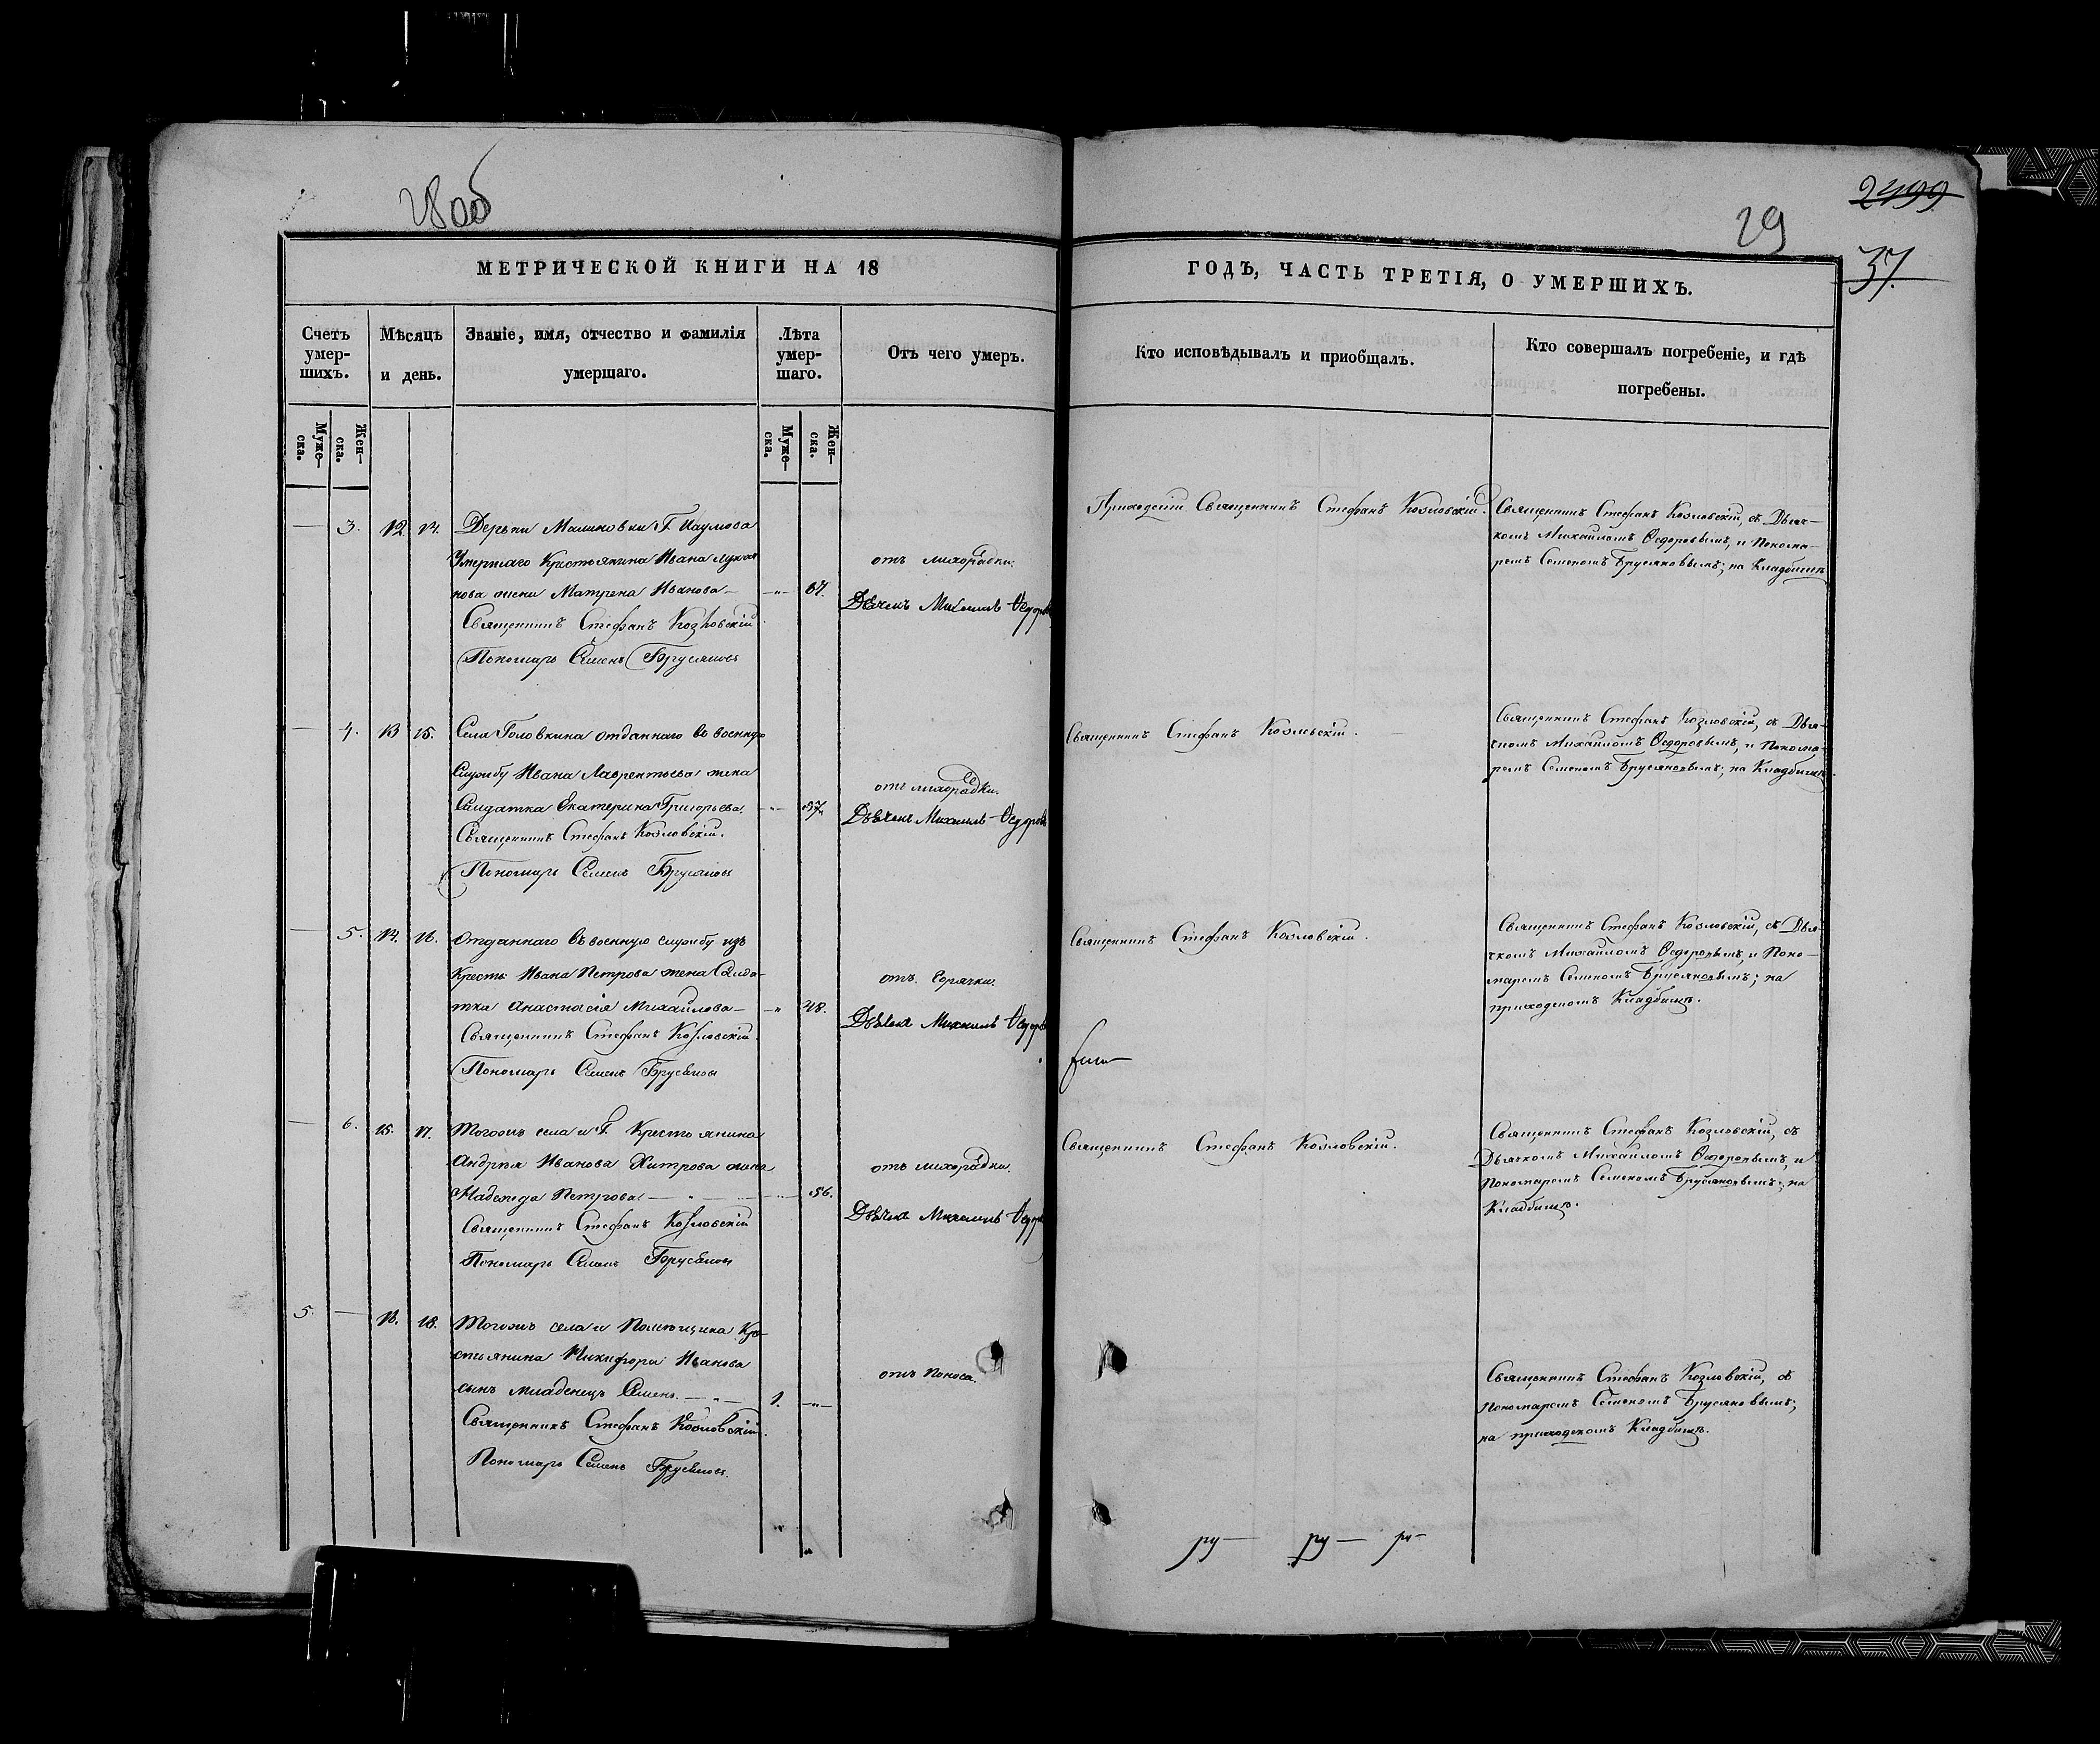 28об
2499
29
37.
МЕТРИЧЕСКОЙ КНИГИ НА 18
ГОДЪ, ЧАСТЬ ТРЕТІЯ, О УМЕРШИХЪ.
Счетъ умер-шихъ.
Мѣсяцъ и день.
Званіе, имя, отчество и фамилія умершаго.
Лѣта умер-шаго.
Отъ чего умеръ.
Кто исповѣдывалъ и пріобщалъ.
Кто совершалъ погребеніе, и гдѣ погребены.
Муже-ска.
Жен-ска.
Муже-ска.
Жен-ска.
3. 12. 14. Деревни Малиновки Г. Наумова
Умершаго Крестьянина Ивана
нова жена Матрена Иванова
Священникъ Стефанъ Козловскій
Пономарь Семенъ Брусяновъ
отъ лихорадки.
Дьячекъ Михаилъ Ѳедоровъ
Приходскій Священникъ Стефанъ Козловскій.
Священникъ Стефанъ Козловскій, съ Дьяч-
комъ Михайломъ Ѳедоровымъ, и Понома-
ремъ Семеномъ Брусяновымъ; на Кладбищѣ
4. 13 15. Села Головкина отданнаго въ военную
службу Ивана Лаврентьева жена
Салдатка Екатерина Григорьева
Священникъ Стефанъ Козловскій.
Пономарь Семенъ Брусяновъ
отъ лихорадки.
Дьячекъ Михаилъ Ѳедоровъ
Священникъ Стефанъ Козловскій.
Священникъ Стефанъ Козловскій, съ Дья-
чкомъ Михайломъ Ѳедоровымъ, и Понома-
ремъ Семеномъ Брусяновымъ; на Кладбищѣ
5. 14. 16. Отданнаго въ военную службу изъ
Крестъ Ивана Петрова жена Салда-
тка Анастасія Михайлова
48.
Священникъ Стефанъ Козловскій.
Пономарь Семенъ Брусяновъ
отъ Горячки.
Дьячекъ Михаилъ Ѳедоровъ
Священникъ Стефанъ Козловскій.
Священникъ Стефанъ Козловскій, съ Дья-
чкомъ Михайломъ Ѳедоровымъ, и Поно-
маремъ Семеномъ Брусяновымъ; на
приходскомъ Кладбищѣ.
6. 15. 17. Тогожъ села и Г. Крестьянина
Андрея Иванова Хитрова жена
Надежда Петрова
56.
Священникъ Стефанъ Козловскій
Пономарь Семенъ Брусяновъ
отъ лихорадки.
Дьячекъ Михаилъ Ѳедоровъ
Священникъ Стефанъ Козловскій.
Священникъ Стефанъ Козловскій, съ
Дьячкомъ Михайломъ Ѳедоровымъ, и
Пономаремъ Семеномъ Брусяновымъ; на
Кладбищѣ.
5. 16. 18. Тогожъ села и Помѣщика Кре-
стьянина Никифора Иванова
сынъ младенецъ Семенъ
1.
Священникъ Стефанъ Козловскій.
Пономарь Семенъ Брусяновъ.
отъ Поноса.
Священникъ Стефанъ Козловскій, съ
Пономаремъ Семеномъ Брусяновымъ;
на приходскомъ Кладбищѣ.
ру— ру— ру—